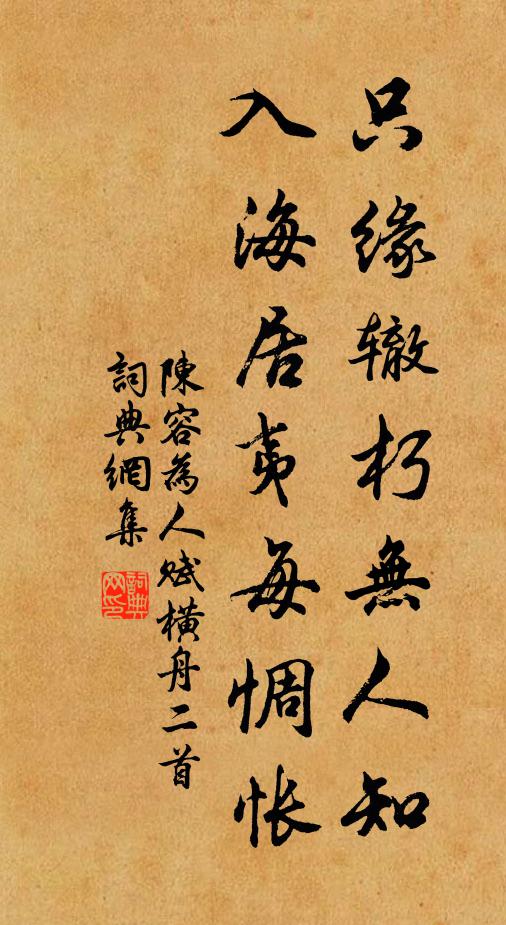 只缘辙朽無人知
入海居夷每惆怅
陳容為人賦横舟二首
詞典網集
詞典
网印